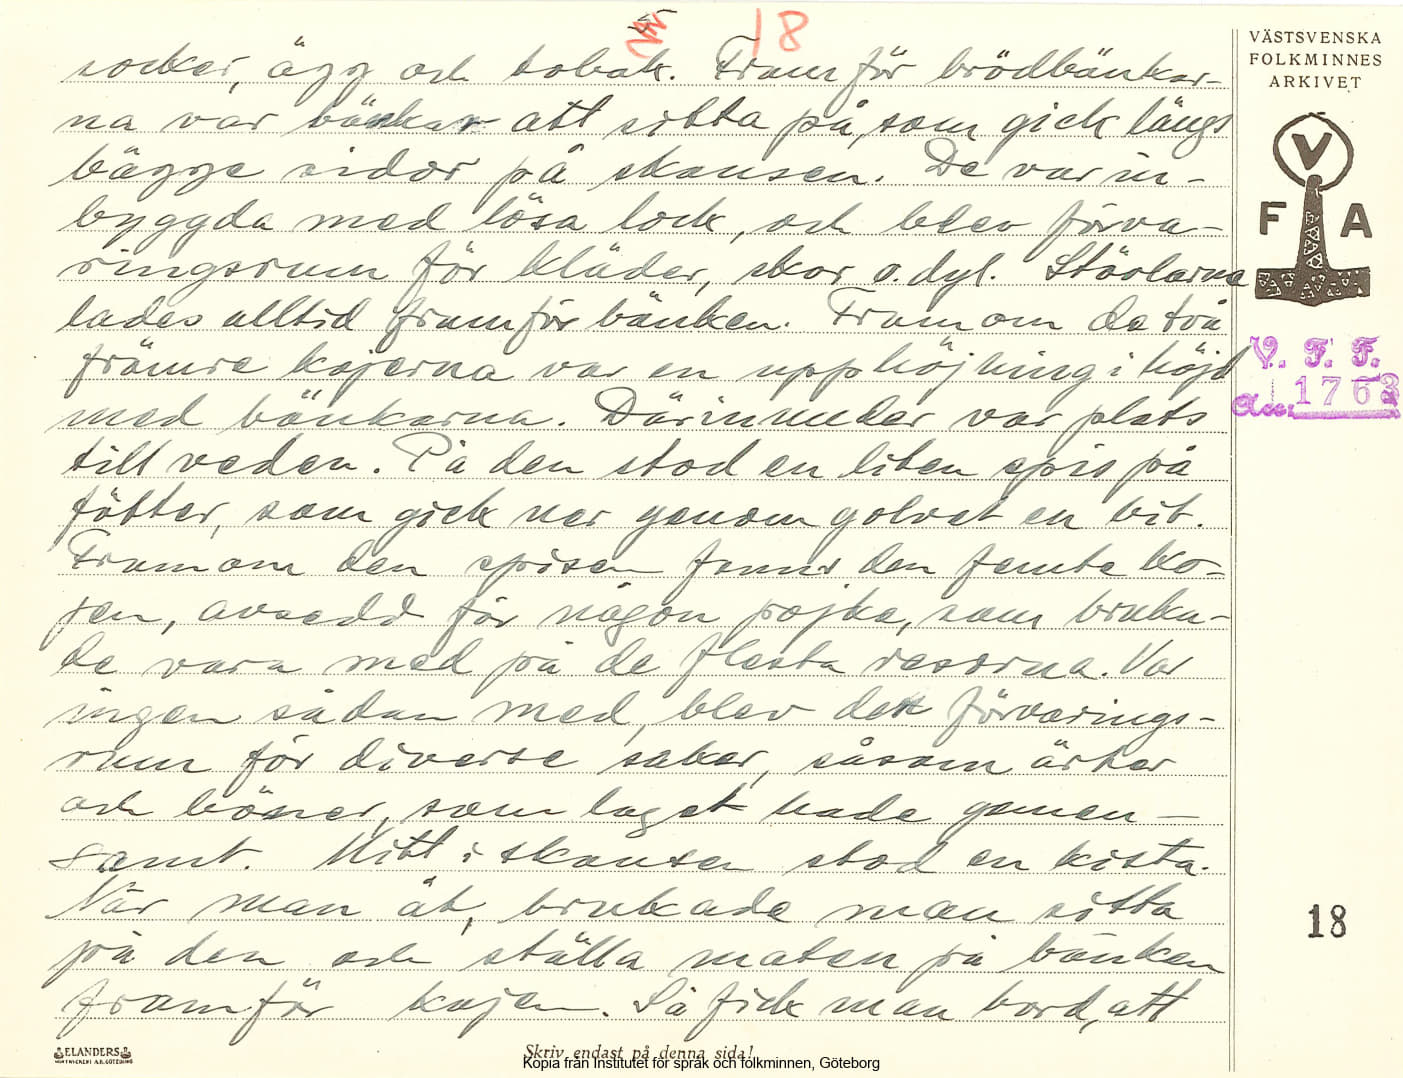 18
VÄSTSVENSKA
FOLKMINNES
ARKIVET
V
F A
V. F. F.
1763
socker, ägg och tobak. Framför brödbänkar-
na var bänkar att sitta på, som gick längs
bägge sidor på skansen. De var in-
byggda med lösa lock, och blev förva-
ringsrum för kläder, skor o.dyl. Stövlarna
lades alltid framför bänken. Framom de två
främre kojerna var en upphöjning i höjd
med bänkarna. Därinunder var plats
till veden. På den stod en liten spis på
fötter, som gick ner genom golvet en bit.
Framom den spisen fanns den femte ko-
jen, avsedd för någon pojke, som bruka-
de vara med på de flesta resorna. Var
ingen sådan med, blev det förvarings-
rum för diverse saker, såsom ärter
och bönor, som laget hade gemen-
samt. Mitt i skansen stod en kista.
När man åt, brukade man sitta
på den och ställa maten på bänken
framför kojen. Så fick man bord, att
18
ELANDERS
Skriv endast på denna sida!
Kopia från Institutet för språk och folkminnen, Göteborg